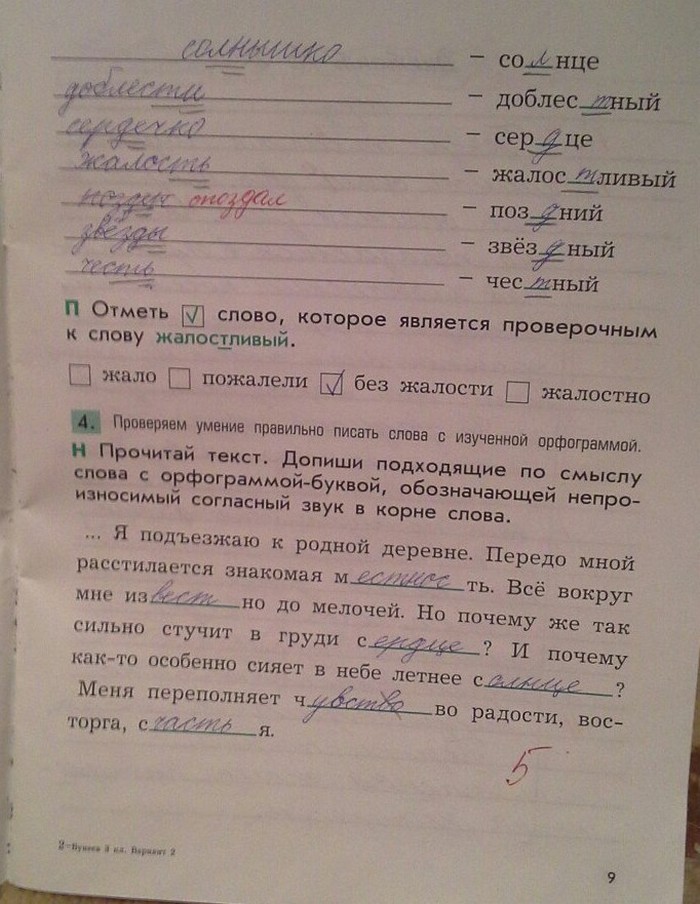 солнышко – солнце
доблести – доблестный
сердечко – сердце
жалость – жалостливый
опоздал – поздний
звёзды – звёздный
честь – честный
П Отметь ☑ слово, которое является проверочным
к слову жалостливый.
☐ жало ☐ пожалели ☑ без жалости ☐ жалостно
4. Проверяем умение правильно писать слова с изученной орфограммой.
Н Прочитай текст. Допиши подходящие по смыслу
слова с орфограммой-буквой, обозначающей непро-
износимый согласный звук в корне слова.
... Я подъезжаю к родной деревне. Передо мной
расстилается знакомая местность. Всё вокруг
мне известно до мелочей. Но почему же так
сильно стучит в груди сердце? И почему
как-то особенно сияет в небе летнее солнце?
Меня переполняет чувство во радости, вос-
торга, счастья я.
5
2–Бунеев 3 кл. Вариант 2
9